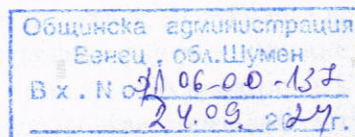 Общинска администрация
Венец, обл.Шумен
Вх. No ДЛ 06-00-137
24.09. 2024 г.